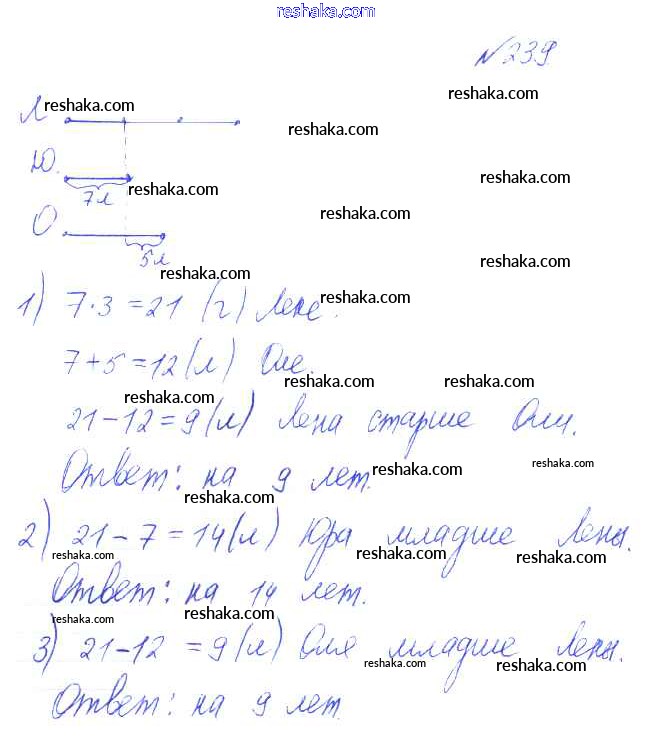 reshaka.com
№ 239
reshaka.com
reshaka.com
Л
reshaka.com
Ю.
reshaka.com
reshaka.com
7 л
reshaka.com
О
5 л
reshaka.com
reshaka.com
reshaka.com
1) 7·3 = 21 (г) Лене.
7 + 5 = 12 (л) Оле.
reshaka.com
reshaka.com
21 - 12 = 9 (л) Лена старше Оли.
reshaka.com
reshaka.com
Ответ: на 9 лет.
reshaka.com
2) 21 - 7 = 14 (л) Юра младше Лены.
reshaka.com
reshaka.com
reshaka.com
Ответ: на 14 лет.
reshaka.com
reshaka.com
3) 21-12 = 9 (л) Оля младше Лены.
reshaka.com
reshaka.com
Ответ: на 9 лет.